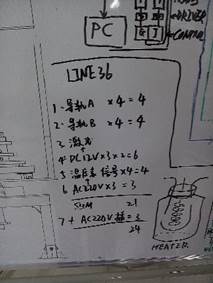 PC
LINE 36
1. 导轨A ×4 = 4
2. 导轨B ×4 = 4
3 激光
4 DC12V×3×2=6
5 温度 信号×4=4
6 AC220V×3=3
SUM 21
7 + AC220V 插=3
24
HEATER